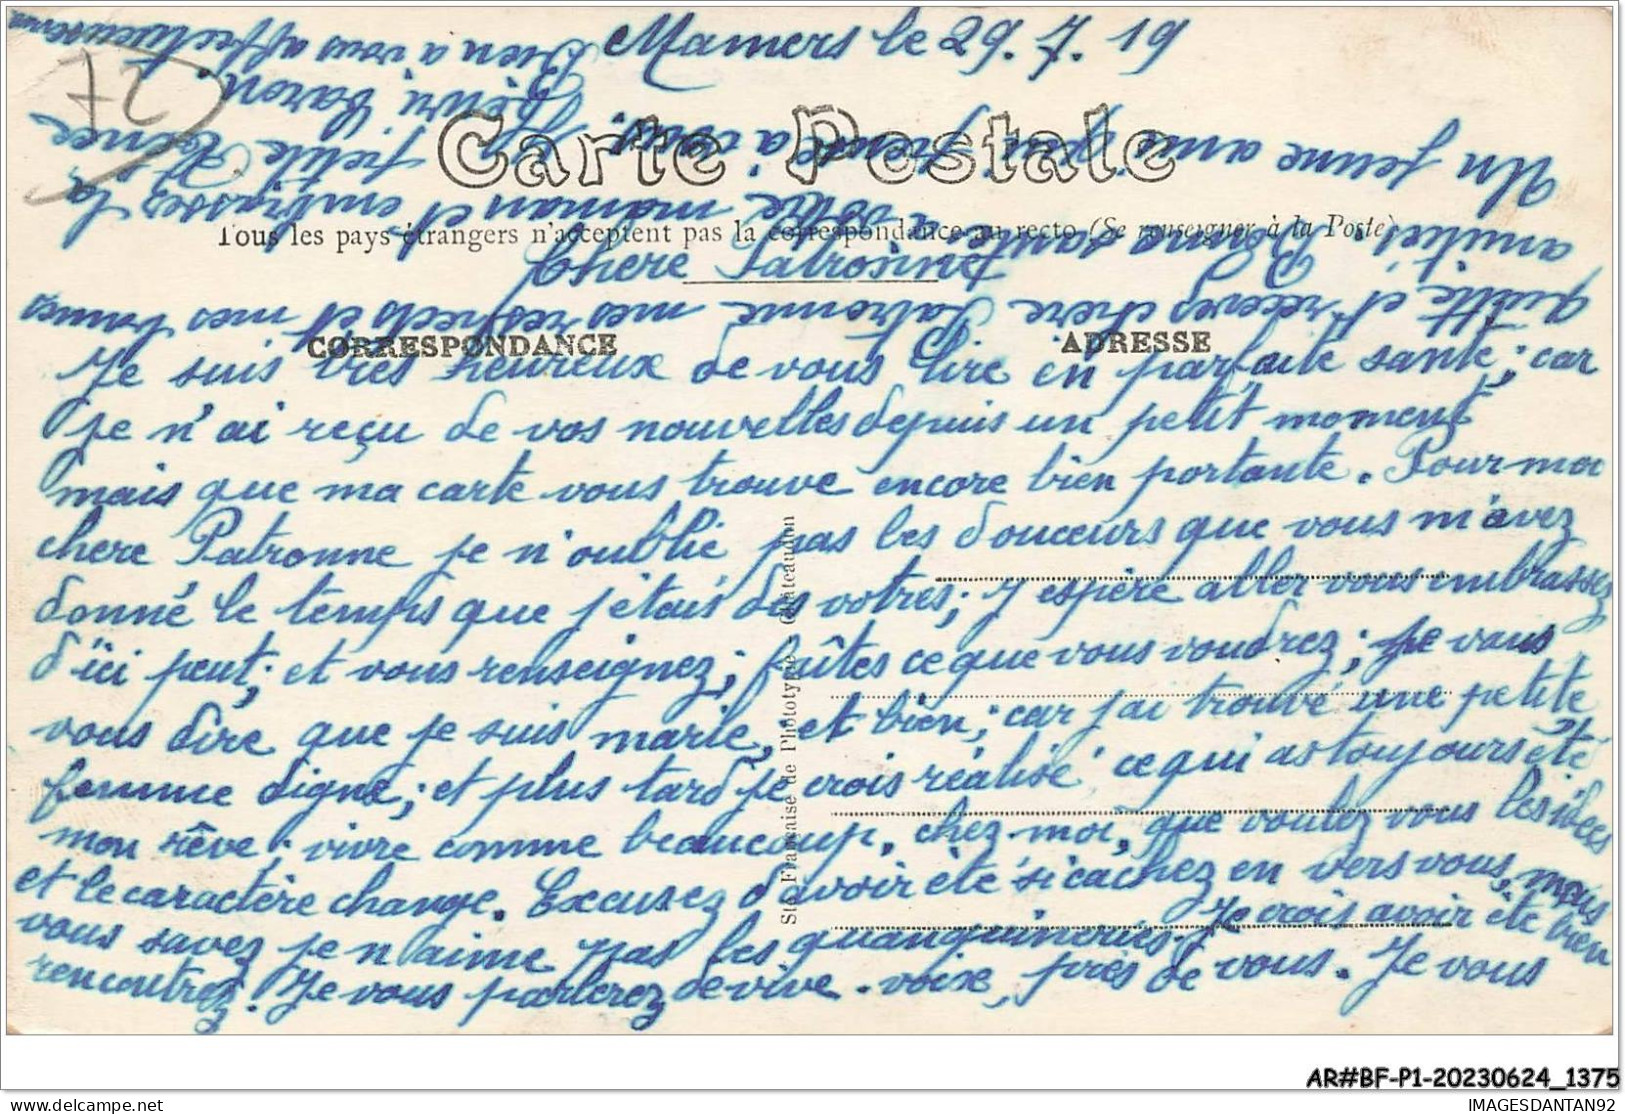 Mamers le 29.7.19
Carte Postale
Tous les pays étrangers n'acceptent pas la correspondance au recto (Se renseigner à la Poste)
Chere Patronne
CORRESPONDANCE
ADRESSE
Je suis très heureux de vous lire en parfaite santé; car
je n'ai reçu de vos nouvelles depuis un petit moment
mais que ma carte vous trouve encore bien portante. Pour moi
chere Patronne je n'oublie pas les douceurs que vous m'avez
donné le temps que j'étais des votres; J'espère aller vous embrassez
d'ici peut; et vous renseignez; faîtes ce que vous voudrez; je vous
vous dire que je suis marié, et bien; car j'ai trouvé une petite
femme digne; et plus tard je crois réalisé ce qui as toujours été
mon rêve; vivre comme beaucoup, chez-moi, que voulez vous les idées
et le caractère change. Excusez d'avoir été si cachez en vers vous, mais
vous savez je n'aime pas les quanquineries. Je crois avoir été bien
rencontrez. Je vous parlerez de vive-voix, près de vous. Je vous
quitte et recevez chère Patronne mes respects et mes bonnes
amitiés
votre maman et embrassez la
petite
Un jeune ami qui pense à vous.
Henri Baron
Bien à vous affectueusement
72
Sté Française de Phototypie - Châteaudun
AR#BF-P1-20230624_1375
delcampe.net
IMAGESDANTAN92